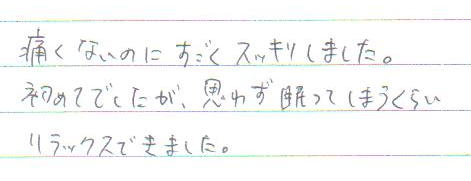 痛くないのにすごくスッキリしました。
初めてでしたが、思わず眠ってしまうくらい
リラックスできました。